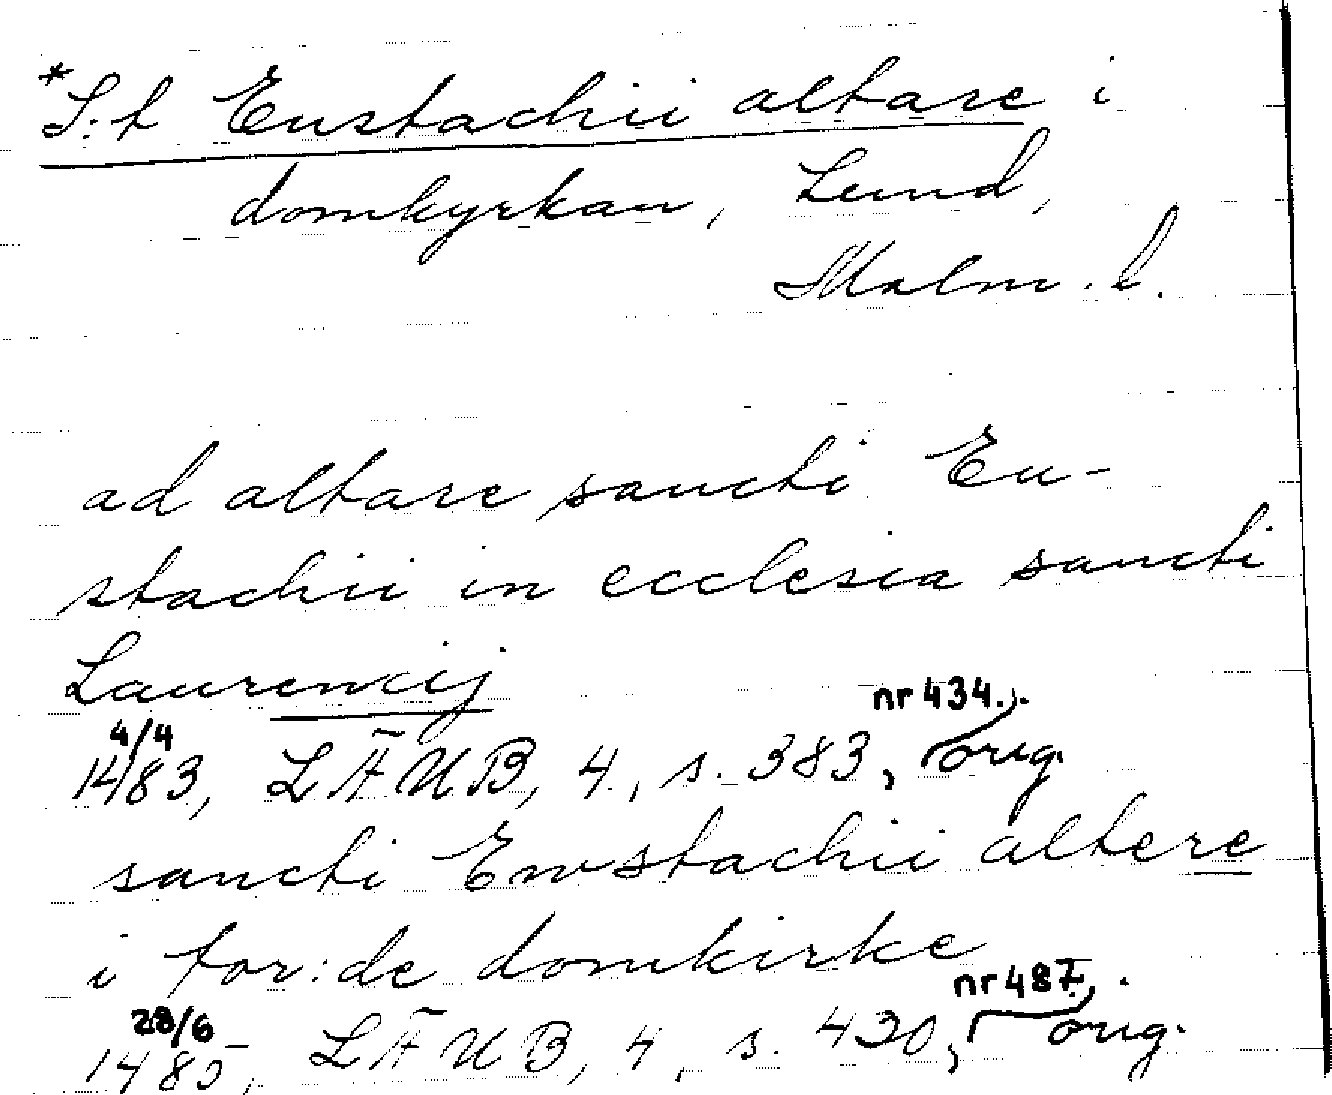 *S:t Eustachii altare i
domkyrkan, Lund,
Malm. l.
ad altare sancti Eu-
stachii in ecclesia sancti
Laurencij
4/4 nr 434.
1483, LÄUB, 4, s. 383, orig.
sancti Ewstachii altere
i for:de domkirke
28/6 nr 487,
1485, LÄUB, 4, s. 420, orig.